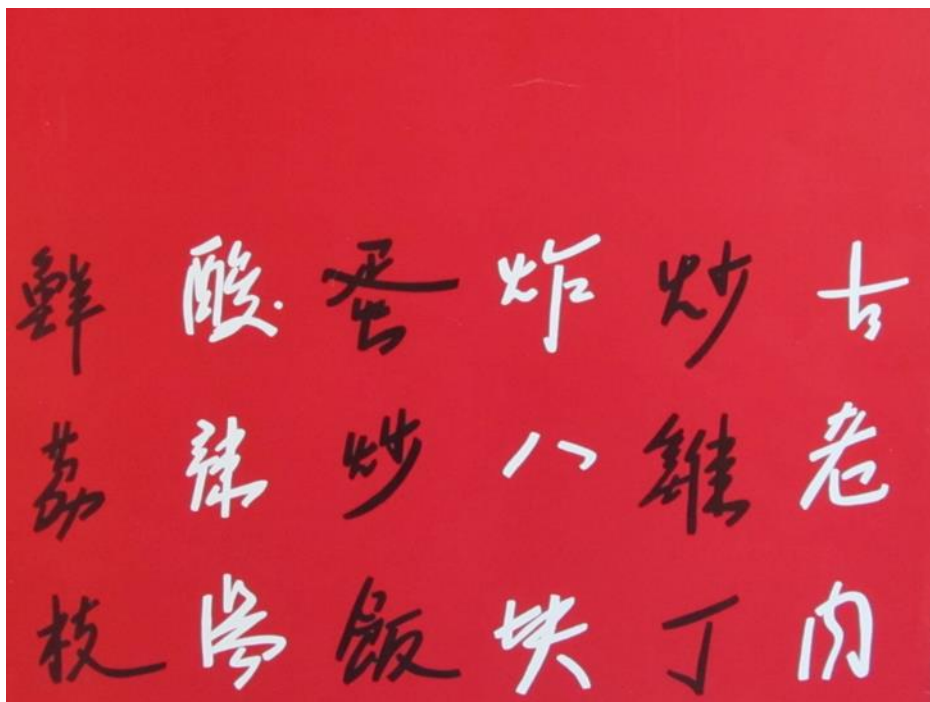 古老肉
炒雞丁
炸八块
蛋炒飯
酸辣湯
鲜荔枝